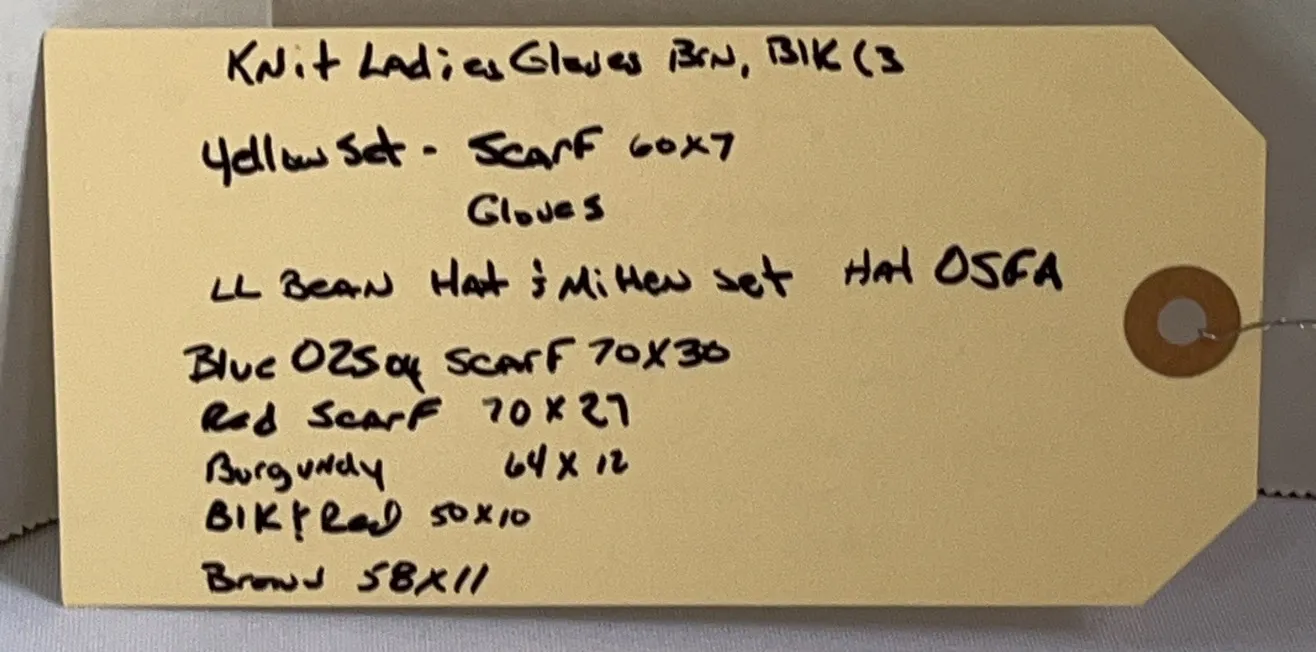 Knit Ladies Gloves Brn, Blk (3
Yellow Set - Scarf 60x7
Gloves
LL Bean Hat & Mitten Set Hat OSFA
Blue Scarf 70x30
Red Scarf 70x27
Burgundy 64x12
Blk & Red 50x10
Brown 58x11